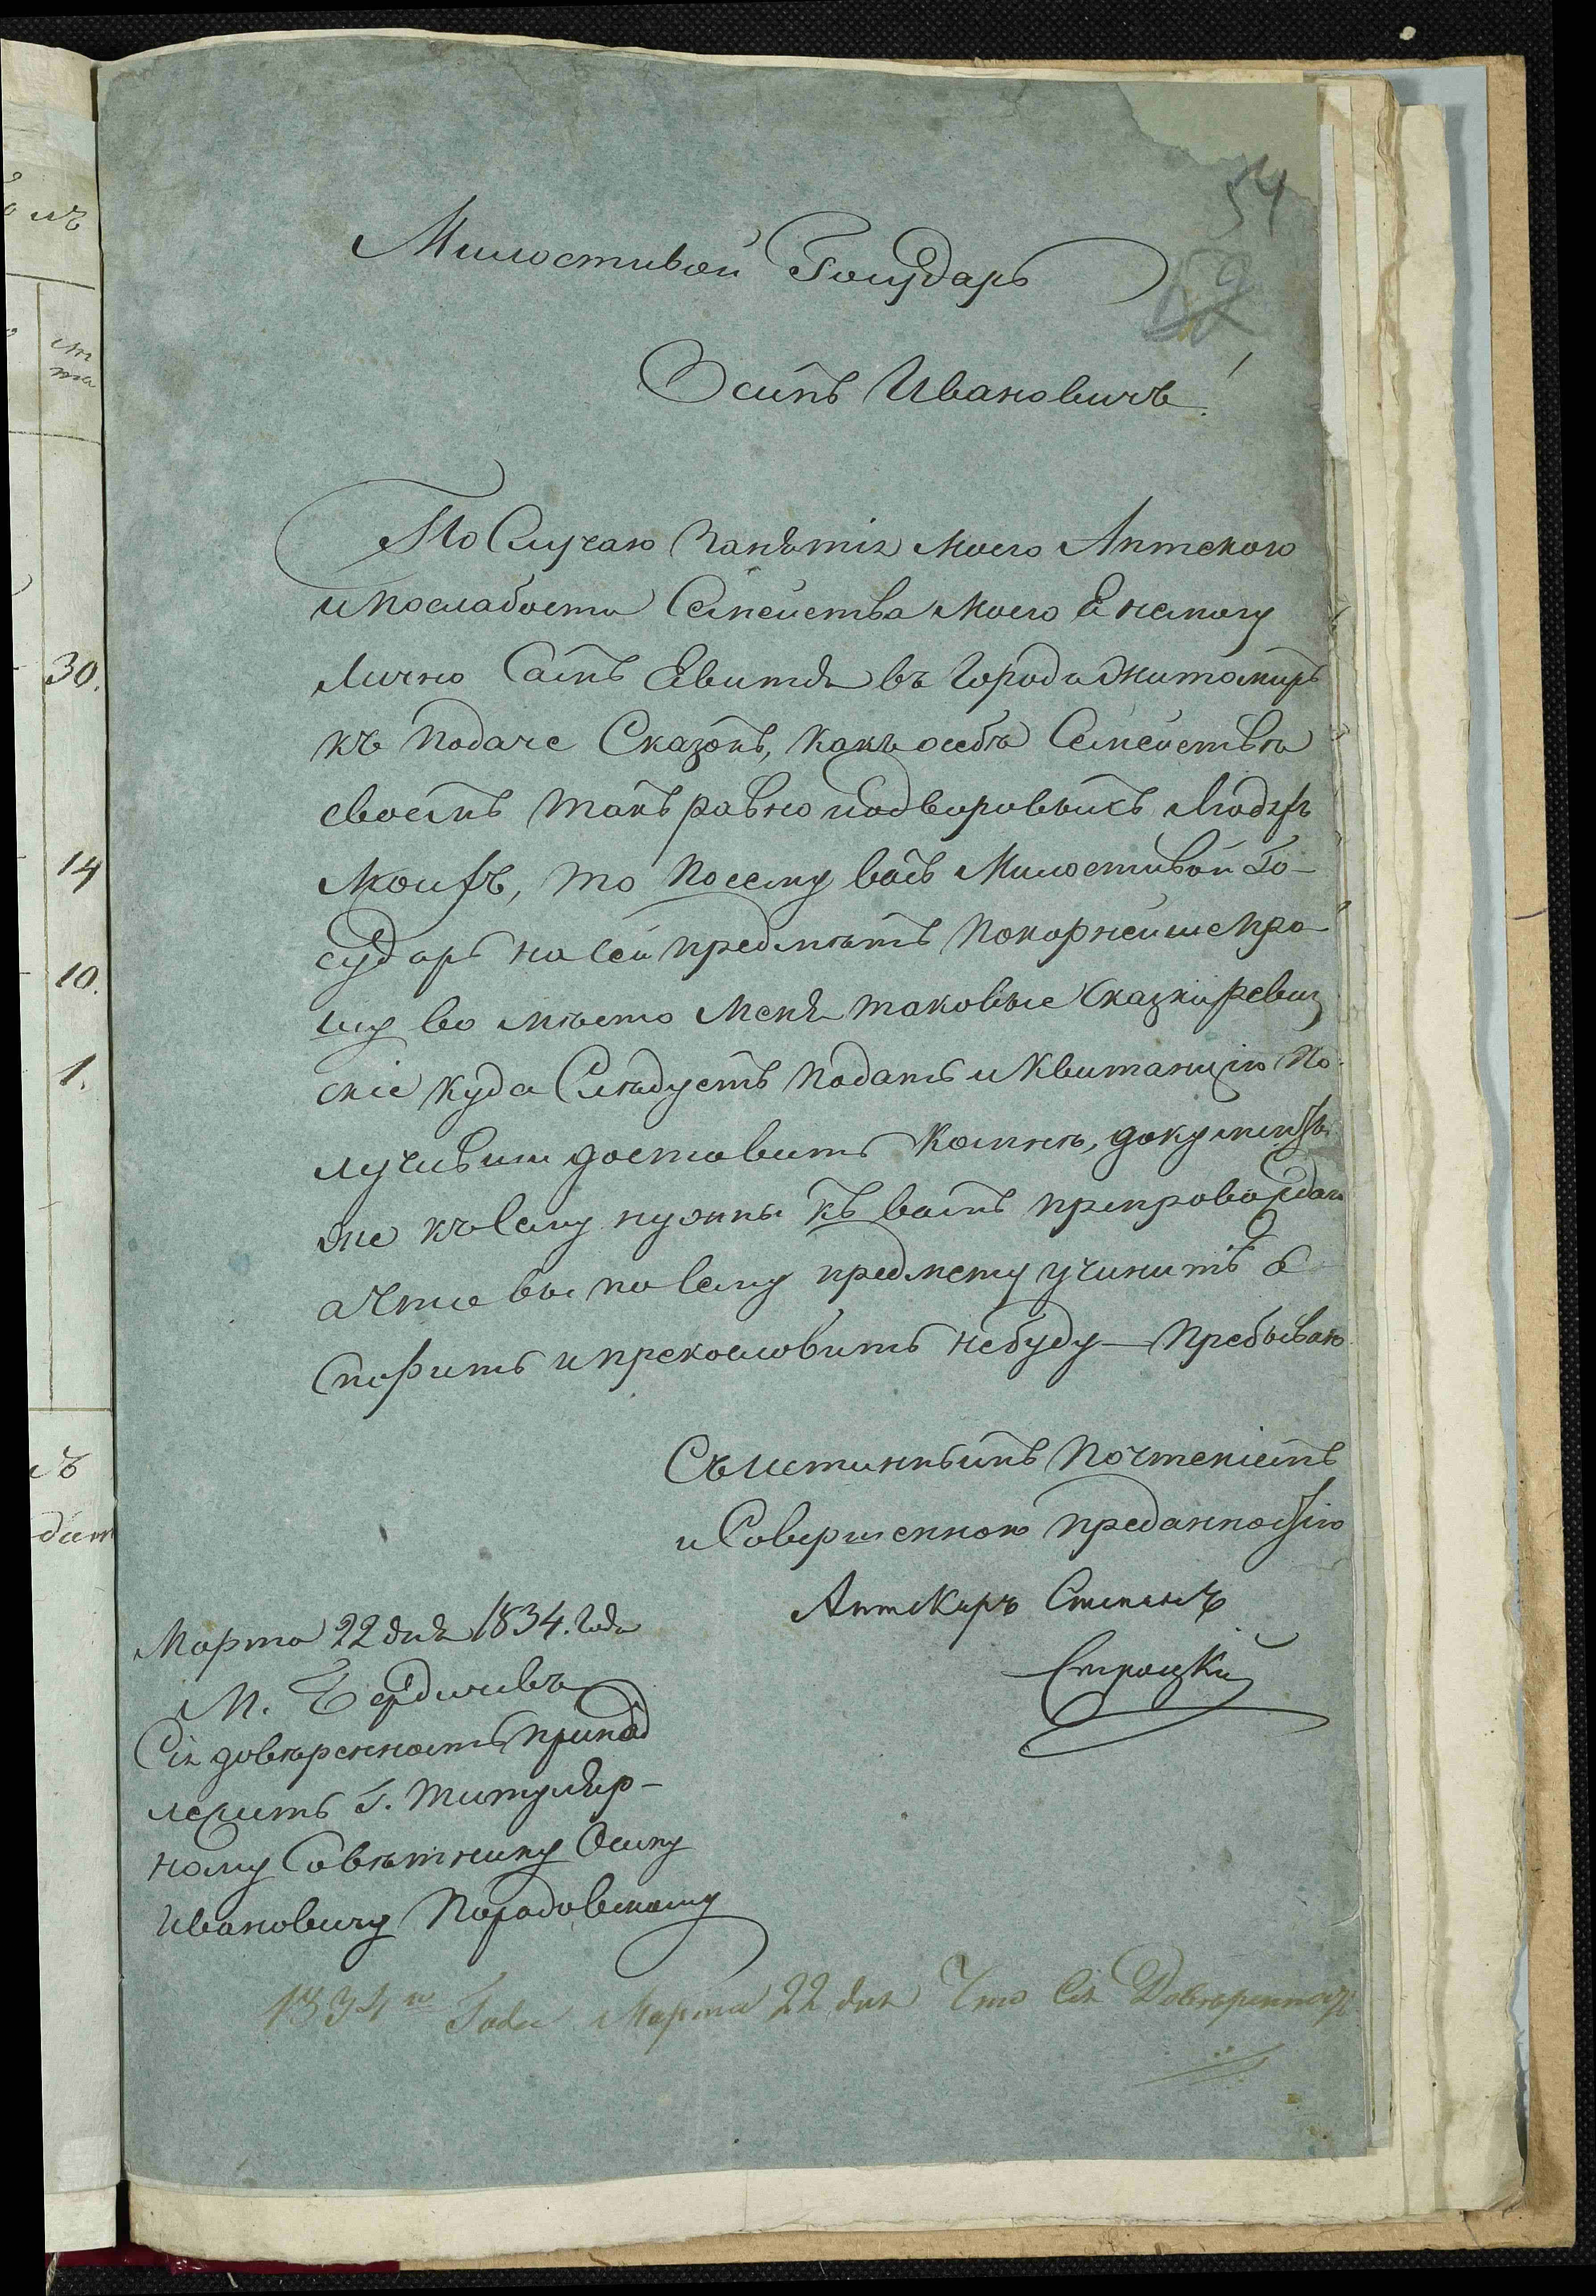 54
Милостивой Государь
Осипъ Ивановичъ!
По Случаю Занятія моего Аптекою
и послабости Семейства моего я немогу
Лично Самъ Явитця въ Городъ Житомиръ
къ подаче Сказокъ, какъ особъ Семейства
своемъ такъ равно и одворовыхъ Людехъ
Моихъ, то посему васъ Милостивой Го-
сударь на сей предмѣтъ покорнейше про
шу во мѣсто Меня таковые Сказки ревиз
скіе куда Слѣдуетъ подать и Квитанцію По-
лучивши доставить Комнѣ, документы
же къ сему нужны къ вамъ препровождаю
а что вы по сему предмету учините я
спорить и прекословить небуду — пребываю
Съ истиннымъ почтеніемъ
и Совершенною преданностію
Аптекарь Степанъ
Строцкій
Марта 22 дня 1834. Года
М. Бердичевъ
Сія довѣренность принад
лежитъ Г. Титуляр-
ному Совѣтнику Осипу
Ивановичу Парадовскому
1834го Года Марта 22 дня Что Сія Довѣренность
30.
14
10.
1.